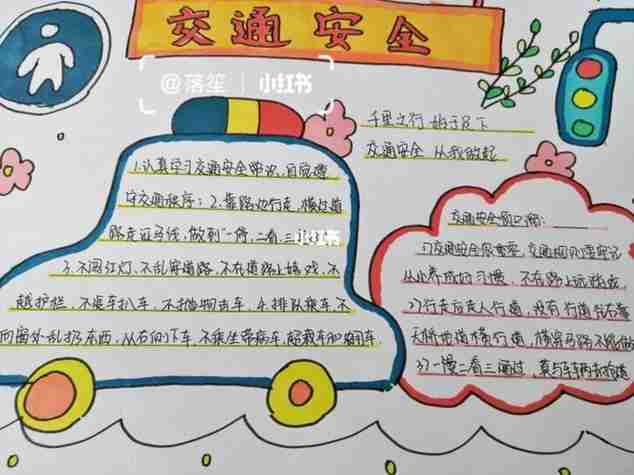 交通安全
@落笙 | 小红书
千里之行 始于足下
交通安全 从我做起
1.认真学习交通安全常识,自觉遵
守交通秩序;2.靠路边行走,横过道
路走斑马线,做到一停,二看,三
小红书
3.不闯红灯,不乱穿道路,不在道路上嬉戏,不
越护栏,不乘车扒车,不抛物击车,4.排队乘车,不
向窗外乱扔东西,从右门下车,不乘坐带病车,超载车和
交通安全图识牌:
1)交通安全很重要,交通规则要牢记
从小养成好习惯,不在路上玩游戏
2)行走应走人行道,没有行道往右靠
天桥地道横行道,横穿马路不能做
3)一慢二看三通过,莫与车辆去抢道